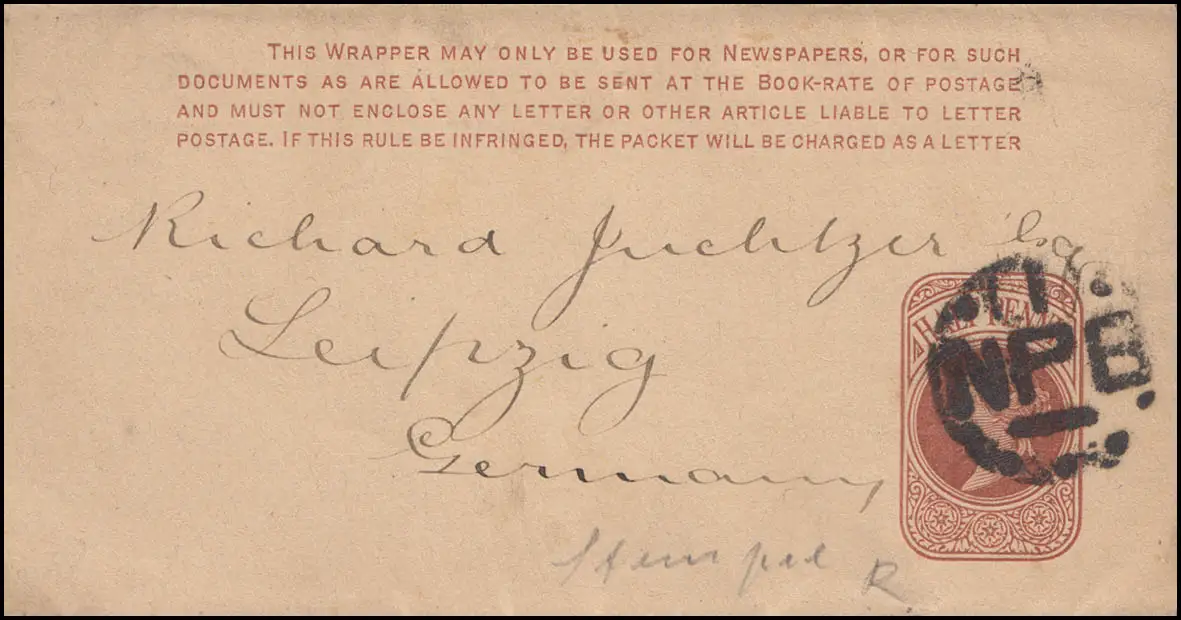 THIS WRAPPER MAY ONLY BE USED FOR NEWSPAPERS, OR FOR SUCH
DOCUMENTS AS ARE ALLOWED TO BE SENT AT THE BOOK-RATE OF POSTAGE
AND MUST NOT ENCLOSE ANY LETTER OR OTHER ARTICLE LIABLE TO LETTER
POSTAGE. IF THIS RULE BE INFRINGED, THE PACKET WILL BE CHARGED AS A LETTER
Richard Juchtzer
Leipzig
Germany
HALF PENNY
NPB
Stempel
R